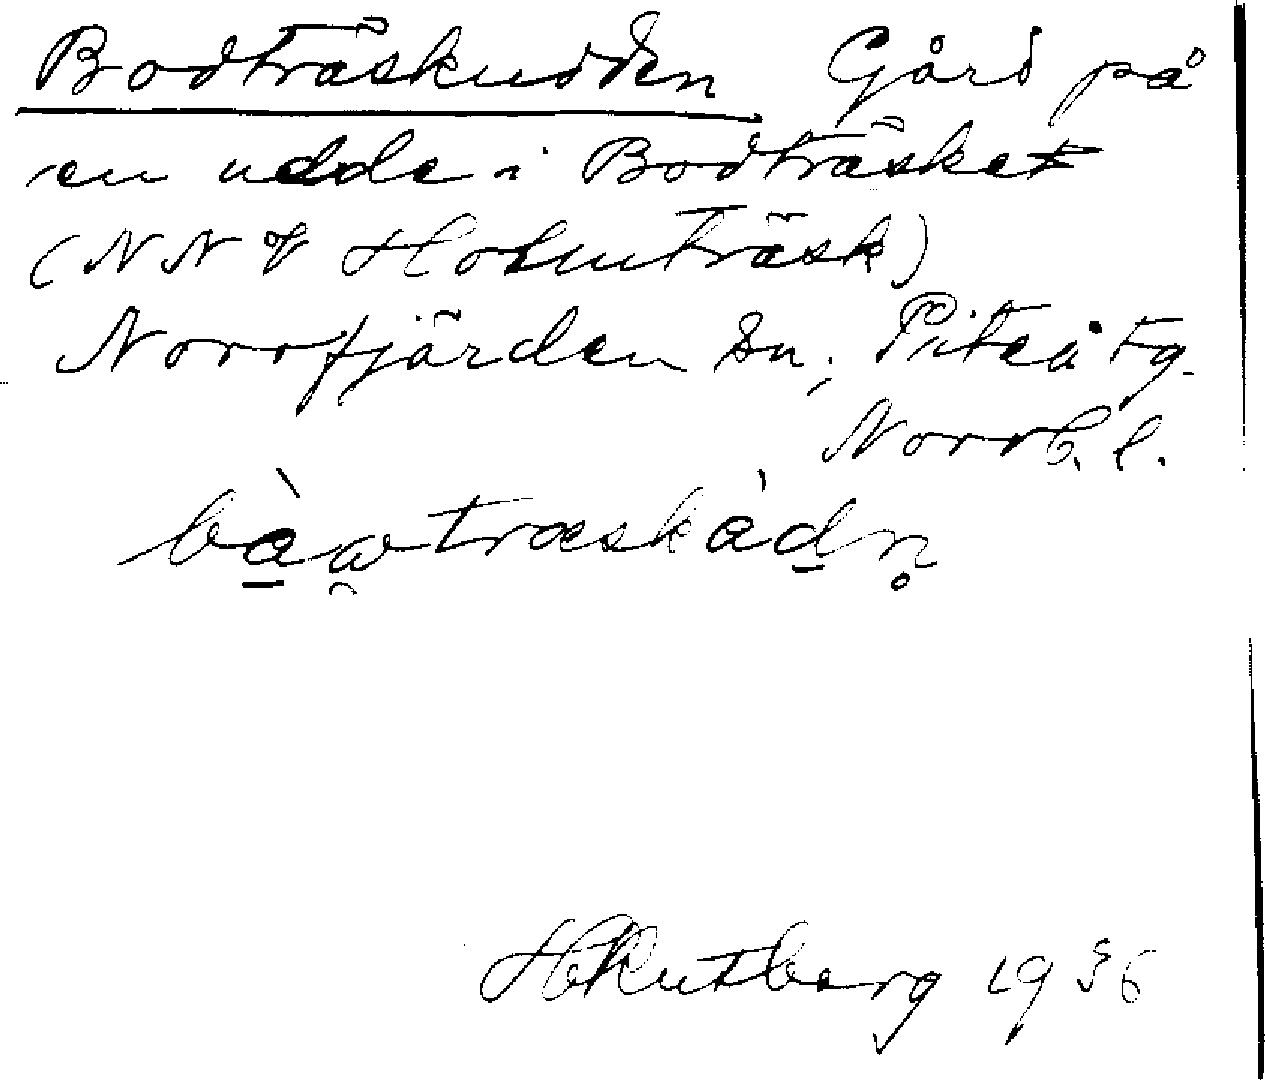 Bodträskudden Gård på
en udde i Bodträsket
(NNV Holmträsk)
Norrfjärden sn, Piteå tg.
Norrb. l.
bàwtræskàdn̥
1936